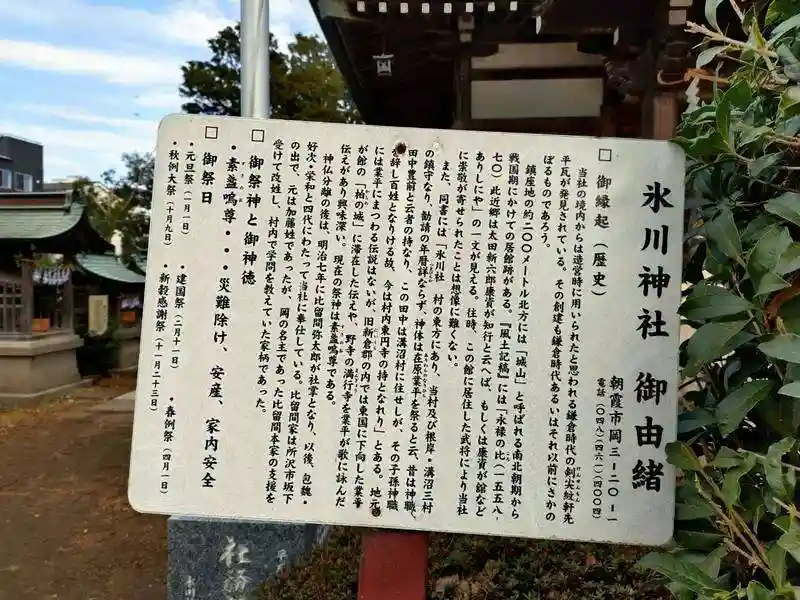 氷川神社 御由緒
朝霞市岡三-二〇-一
電話 〇四八(四六一)四〇〇四
□ 御縁起(歴史)
当社の境内からは造営時に用いられたと思われる鎌倉時代の剣尖紋軒先
平瓦が発見されている。その創建も鎌倉時代あるいはそれ以前にさかの
ぼるものであろう。
鎮座地の約二〇〇メートル北方には「城山」と呼ばれる南北朝期から
戦国期にかけての居館跡がある。『風土記稿』には「永禄の比(一五五八-
七〇)此近郷は太田新六郎康資が知行と云へば、もしくは康資が舘など
ありしにや」の一文が見える。往時、この館に居住した武将により当社
に崇敬が寄せられたことは想像に難くない。
また、同書には「氷川社 村の東方にあり、当村及び根岸・溝沼三村
の鎮守なり、勧請の年暦詳ならず、神体は在原業平を祭ると云、昔は神職、
田中豊前と云者の持なり、この田中は溝沼村に住せしが、その子孫神職
を辞し百姓となりける故、今は村内東円寺の持となれり」とある。地元
には業平にまつわる伝説はないが、旧新倉郡の内では東国に下向した業平
が館の「柏の城」に滞在した伝えや、野寺の満行寺を業平が歌に詠んだ
伝えがあり興味深い。現在の祭神は素盞嗚尊である。
神仏分離の後は、明治七年に比留間弥太郎が社掌となり、以後、包魏・
好次・栄和と四代にわたって当社に奉仕している。比留間家は所沢市坂下
の出で、元は加藤姓であったが、岡の名主であった比留間本家の支援を
受けて改姓し、村内で学問を教えていた家柄であった。
□ 御祭神と御神徳
・素盞嗚尊・・・災難除け、安産、家内安全
□ 御祭日
・元旦祭(一月一日) ・建国祭(二月十一日) ・春例祭(四月一日)
・秋例大祭(十月九日) ・新穀感謝祭(十一月二十三日)